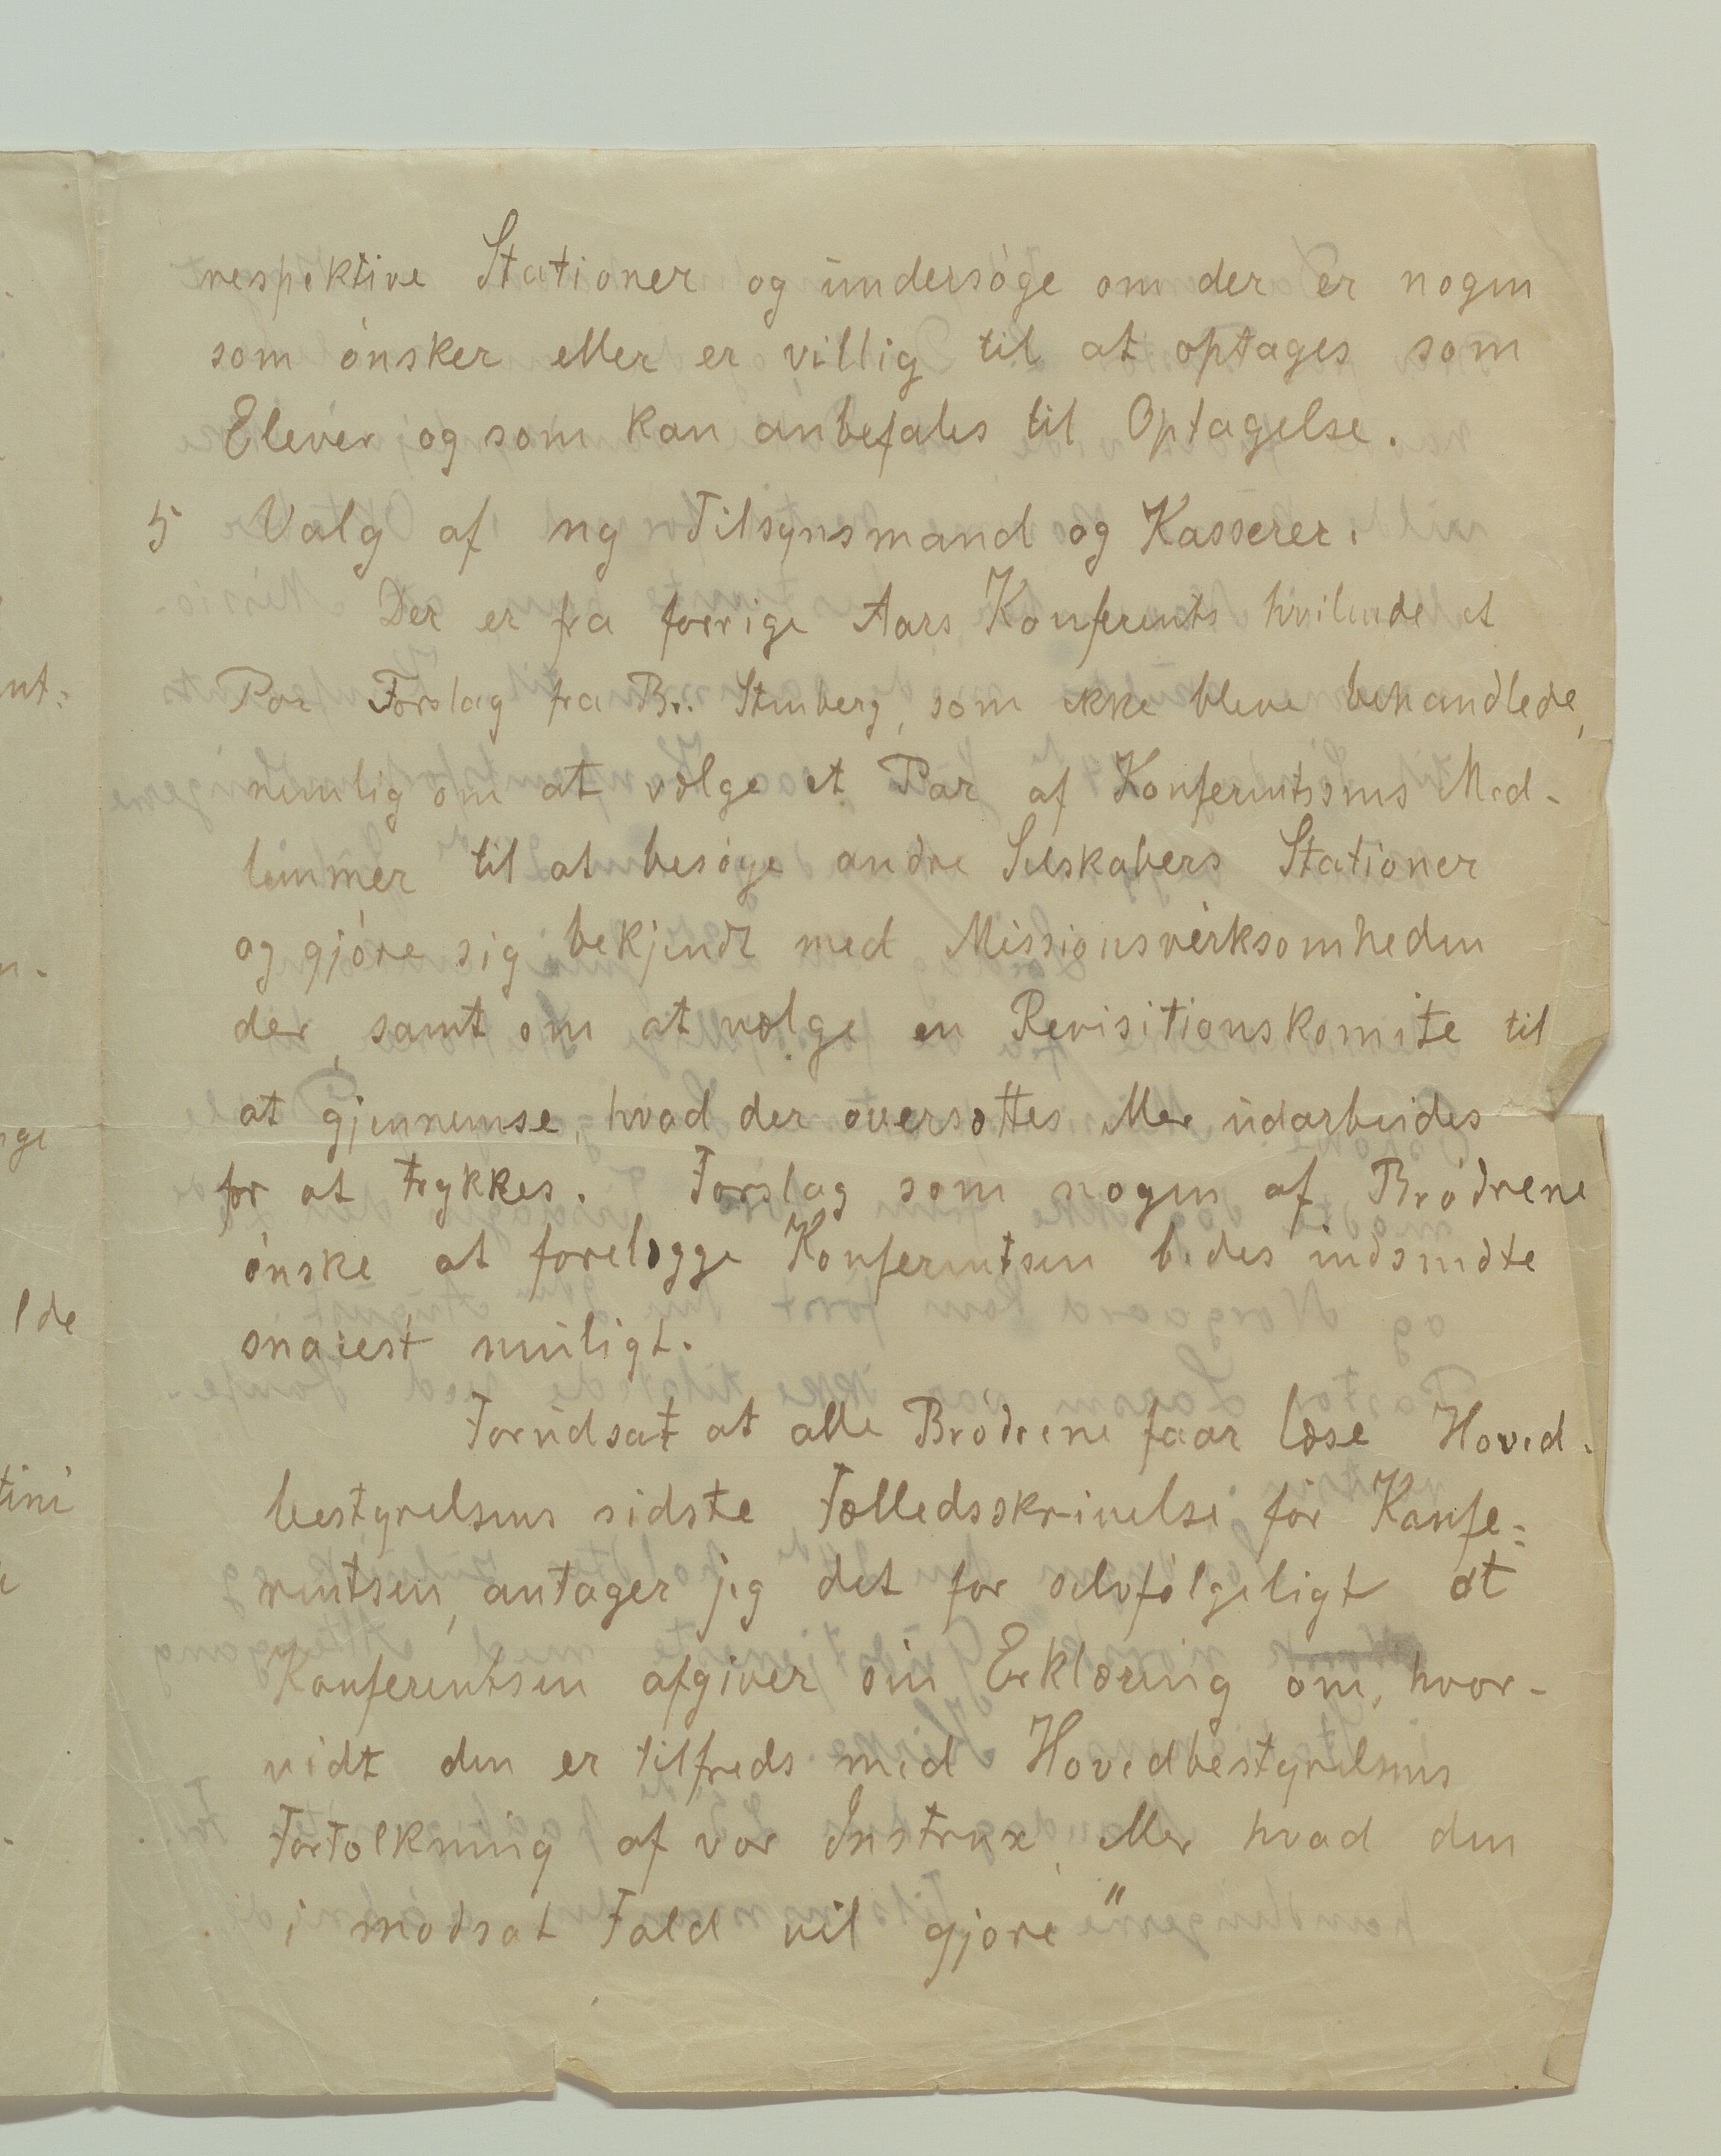 respektive Stationer og undersøge om der er nogen
som ønsker eller er villig til at optages som
Elever og som kan anbefales til Optagelse.
5 Valg af ny Tilsynsmand og Kasserer.
Der er fra forrige Aars Konferents hvilende et
Par Forslag fra Br. Stenberg, som ikke bleve behandlede,
nemlig om at vælge et Par af Konferentsens Med-
lemmer til at besøge andre Selskabers Stationer
og gjøre sig bekjendt med Missionsverksomheden
der, samt om at vælge en Revisitionskomite til
at gjennemse, hvad der oversættes eller udarbeides
for at trykkes. Forslag som nogen af Brødrene
ønske at forelægge Konferentsen bedes indsendte
snarest muligt.
Forudsat at alle Brødrene faar læse Hoved-
bestyrelsens sidste Fælledsskrivelse før Konfe-
rentsen, antager jeg det for selvfølgeligt at
Konferentsen afgiver sin Erklæring om, hvor-
vidt den er tilfreds med Hovedbestyrelsens
Fortolkning af vor Instrux, eller hvad den
i modsat Fald vil gjøre"